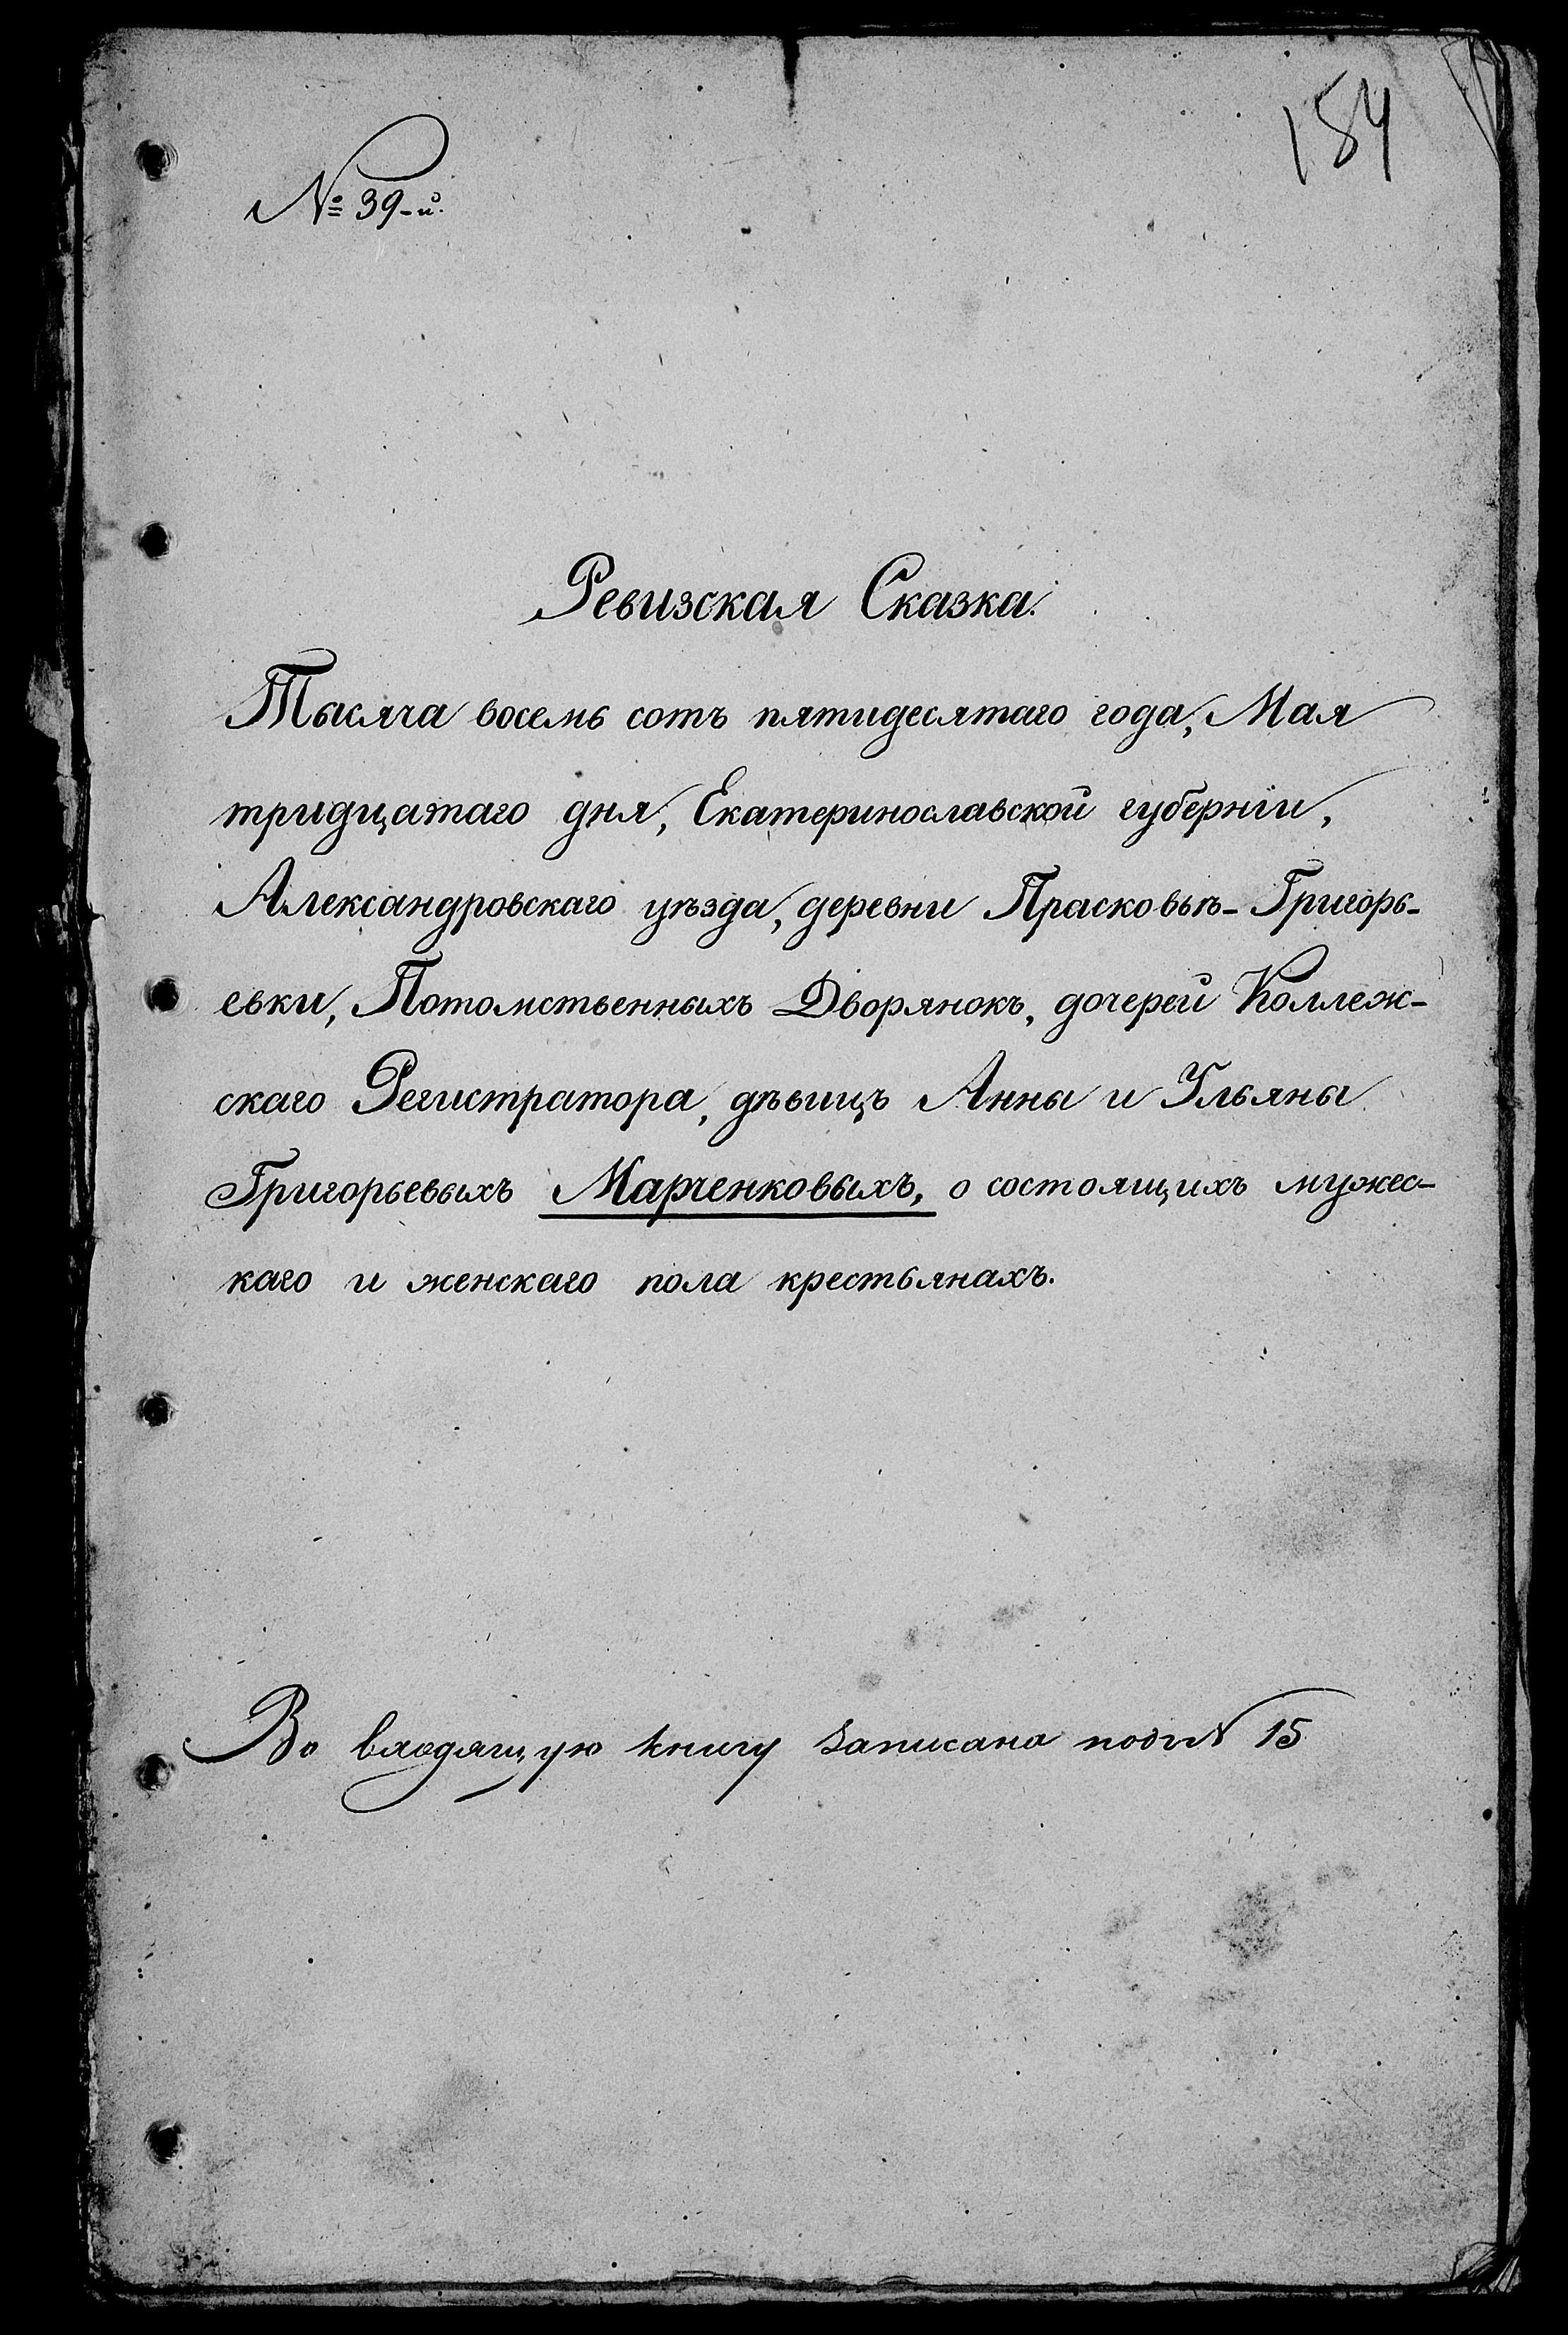 184
№ 39-й.
Ревизская Сказка.
Тысяча восемь сотъ пятидесятаго года, Мая
тридцатаго дня, Екатеринославской губернiи,
Александровскаго уѣзда, деревни Прасковьѣ-Григорь-
евки, Потомственныхъ Дворянокъ, дочерей Коллеж-
скаго Регистратора, дѣвицъ Анны и Ульяны
Григорьевыхъ Марченковыхъ, о состоящихъ мужес-
каго и женскаго пола крестьянахъ.
Во входящую книгу записано подъ N 15